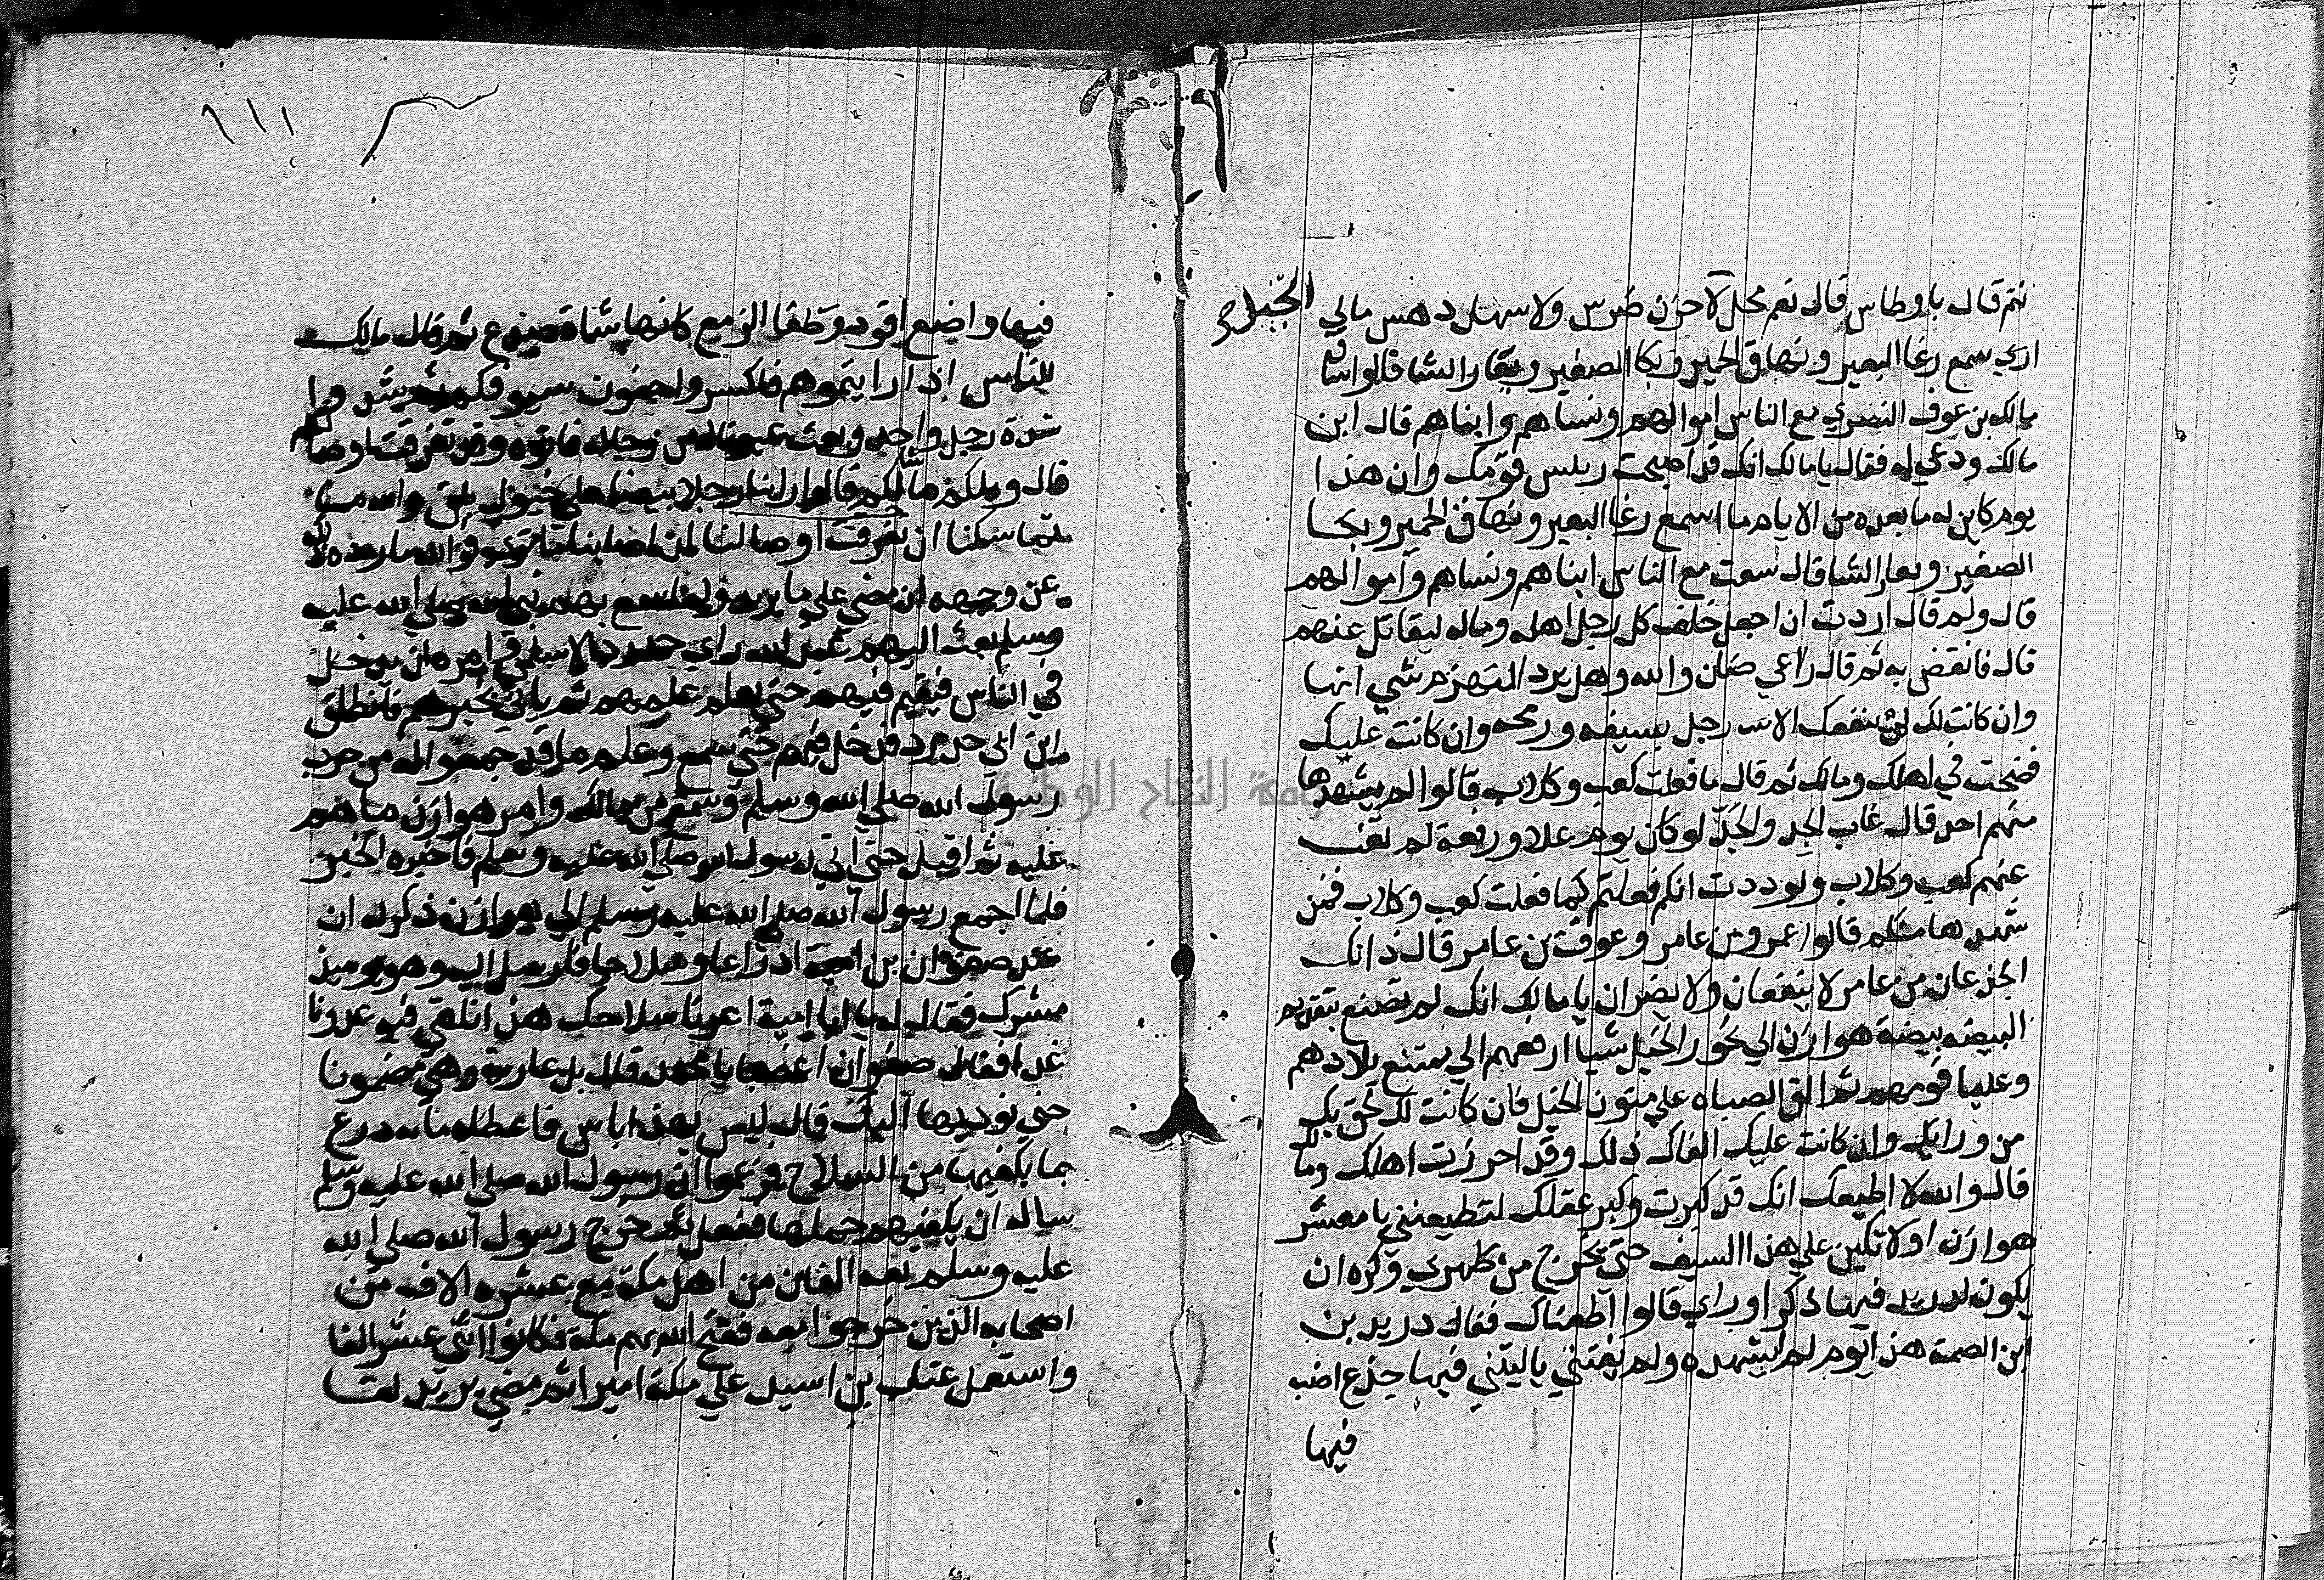 ثم قال باوطاس قال نعم محل لا حزن ضرس ولا سهل دهس مالي
الخيل ح
اري سمع رغا البعير ونهاق الحمير وبكا الصغير ويعار الشا قالوا ساق
مالك بن عوف النصري مع الناس اموالهم ونساهم وابناهم قال ابن
مالك ودعي له فقال يا مالك انك قد اصبحت رييس قومك وان هذا
يوم كاين له ما بعده من الايام ما اسمع رغا البعير ونهاق الحمير وبكا
الصغير ويعار الشا قال سقت مع الناس ابناهم ونساهم واموالهم
قال ولم قال اردت ان اجعل خلف كل رجل اهله وماله ليقاتل عنهم
قال فانقض به ثم قال راعي ضان والله وهل يرد المنهزم شي انها
وان كانت لك لن ينفعك الا رجل بسيفه ورمحه وان كانت عليك
فضحت في اهلك ومالك ثم قال ما فعلت كعب وكلاب قالوا لم يشهدها
منهم احد قال غاب الحد والجد لو كان يوم علا ورفعة لم تغب
عنهم كعب وكلاب ولوددت انكم فعلتم كما فعلت كعب وكلاب فمن
شهدها منكم قالوا عمرو بن عامر وعوف بن عامر قال ذانك
الجذعان من عامر لا ينفعان ولا يضران يا مالك انك لم تصنع بتقديم
البيضه بيضة هوازن الي نحور الخيل شيا ارفعهم الي ممتنع بلادهم
وعليا قومهم ثم الق الصباه علي متون الخيل فان كانت لك لحق بك
من ورايك وان كانت عليك الفاك ذلك وقد احرزت اهلك ومالك
قال والله لا اطيعك انك قد كبرت وكبر عقلك لتطيعنني يا معشر
هوازن او لاتكين علي هذا السيف حتي يخرج من ظهري وكره ان
يكون لدريد فيها ذكر او راي قالوا اطعناك فقال دريد بن
ابن الصمة هذا يوم لم اشهده ولم يفتني يا ليتني فيها جذع اخب
فيها
١١١
فيها واضع اقود وطفا الزمع كانها شاة صدع ثم قال مالك
للناس اذا رايتموهم فاكسروا جفون سيوفكم ثم شدوا
شدة رجل واحد وبعث عيونا من رجاله فاتوه وقد تفرقت اوصالهم
قال ويلكم ما لكم قالوا راينا رجلا بيضا علي خيول بلق والله ما
تماسكنا ان تفرقت اوصالنا لمن اصابنا ما تري فوالله ما رده ذلك
عن وجهه ان مضي علي ما يريد ولما سمع بهم نبي الله صلي الله عليه
وسلم بعث اليهم عبد الله بن ابي حدرد الاسلمي وامره ان يدخل
في الناس فيقيم فيهم حتي يعلم علمهم ثم ياتي بخبرهم فانطلق
ابن ابي حدرد فدخل فيهم حتي سمع وعلم ما قد جمعوا له من حرب
رسول الله صلي الله وسلم وسمع من مالك وامر هوازن ما هم
عليه ثم اقبل حتي اتي رسول الله صلي الله عليه وسلم فاخبره الخبر
فلما اجمع رسول الله صلي الله عليه وسلم الي هوازن ذكر له ان
عند صفوان بن امية ادراعا وسلاحا فارسل اليه وهو يوميذ
مشرك فقال له يا ابا امية اعرنا سلاحك هذا نلقي فيه عدونا
غدا فقال صفوان اغصبا يا محمد قال بل عارية وهي مضمونا
حتي نوديها اليك قال ليس بهذا باس فاعطاه مايه درع
بما يكفيها من السلاح فزعموا ان رسول الله صلي الله عليه وسلم
ساله ان يكفيهم حملها ففعل ثم خرج رسول الله صلي الله
عليه وسلم معه الفان من اهل مكة مع عشره الاف من
اصحابه الذين خرجوا معه ففتح الله بهم مكة فكانوا اثني عشر الفا
واستعمل عتاب بن اسيد علي مكة اميرا ثم مضي يريد لقا
جامعة النجاح الوطنية